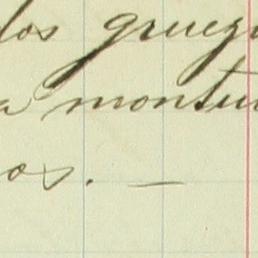 los grueg
a montu
os. —